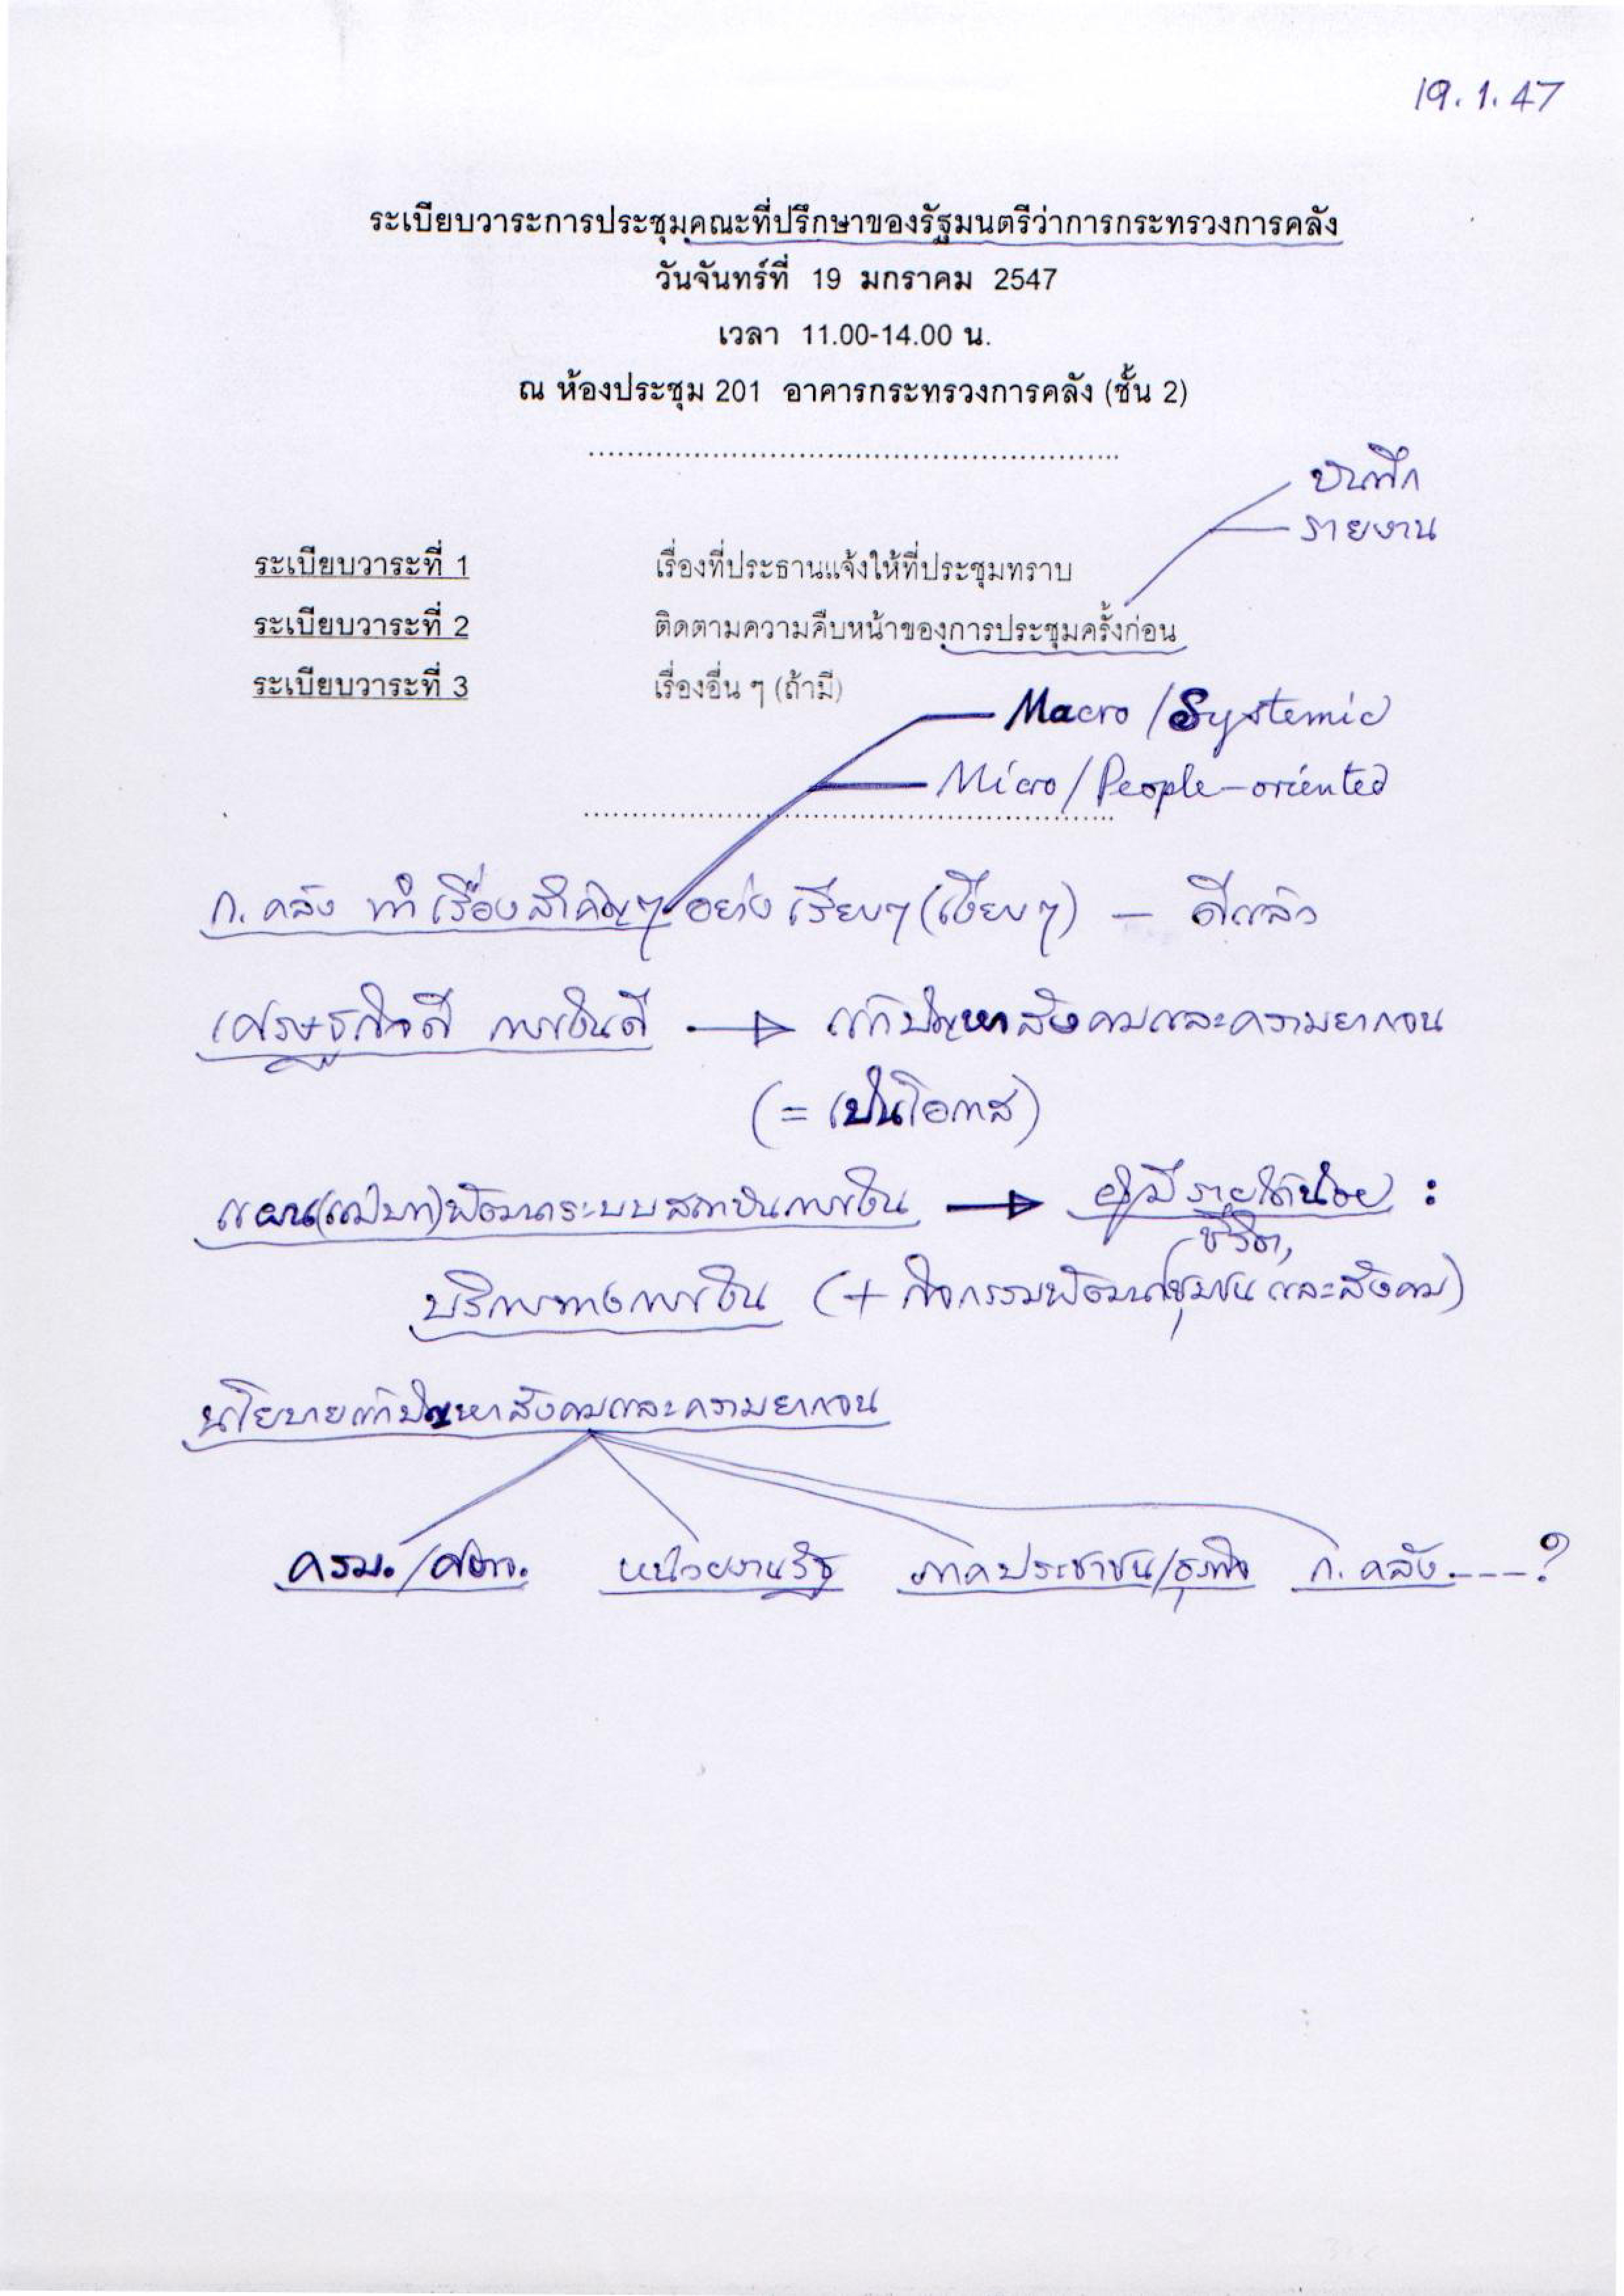 19.1.47
ระเบียบวาระการประชุมคณะที่ปรึกษาของรัฐมนตรีว่าการกระทรวงการคลัง
วันจันทร์ที่ 19 มกราคม 2547
เวลา 11.00-14.00 น.
ณ ห้องประชุม 201 อาคารกระทรวงการคลัง (ชั้น 2)
บันทึก
รายงาน
ระเบียบวาระที่ 1 เรื่องที่ประธานแจ้งให้ที่ประชุมทราบ
ระเบียบวาระที่ 2 ติดตามความคืบหน้าของการประชุมครั้งก่อน
ระเบียบวาระที่ 3 เรื่องอื่น ๆ (ถ้ามี)
Macro / Systemic
Micro / People-oriented
ก. คลัง ทำเรื่องสำคัญๆ อย่างเรียบๆ (เงียบๆ) — ดีแล้ว
เศรษฐกิจดี การเงินดี → แก้ปัญหาสังคมและความยากจน
(= เป็นโอกาส)
แผน(แม่บท)พัฒนาระบบสถาบันการเงิน → ผู้มีรายได้น้อย :
ชีวิต,
บริการทางการเงิน (+ กิจกรรมพัฒนาชุมชน และสังคม)
นโยบายแก้ปัญหาสังคมและความยากจน
ครม./ศตจ. หน่วยงานรัฐ ภาคประชาชน/ธุรกิจ ก. คลัง ----?